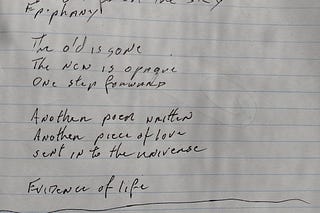 the sky
Epiphany
The old is gone
The new is opaque
One step forward
Another poem written
Another piece of love
sent in to the universe
Evidence of life